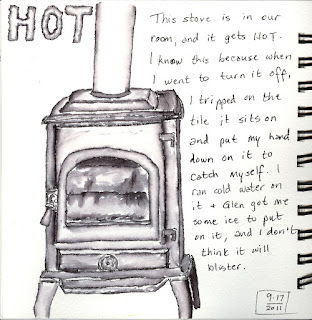 HOT
This stove is in our
room, and it gets HOT.
I know this because when
I went to turn it off,
I tripped on the
tile it sits on
and put my hand
down on it to
catch myself. I
ran cold water on
it + Glen got me
some ice to put
on it, and I don't
think it will
blister.
9.17
2011